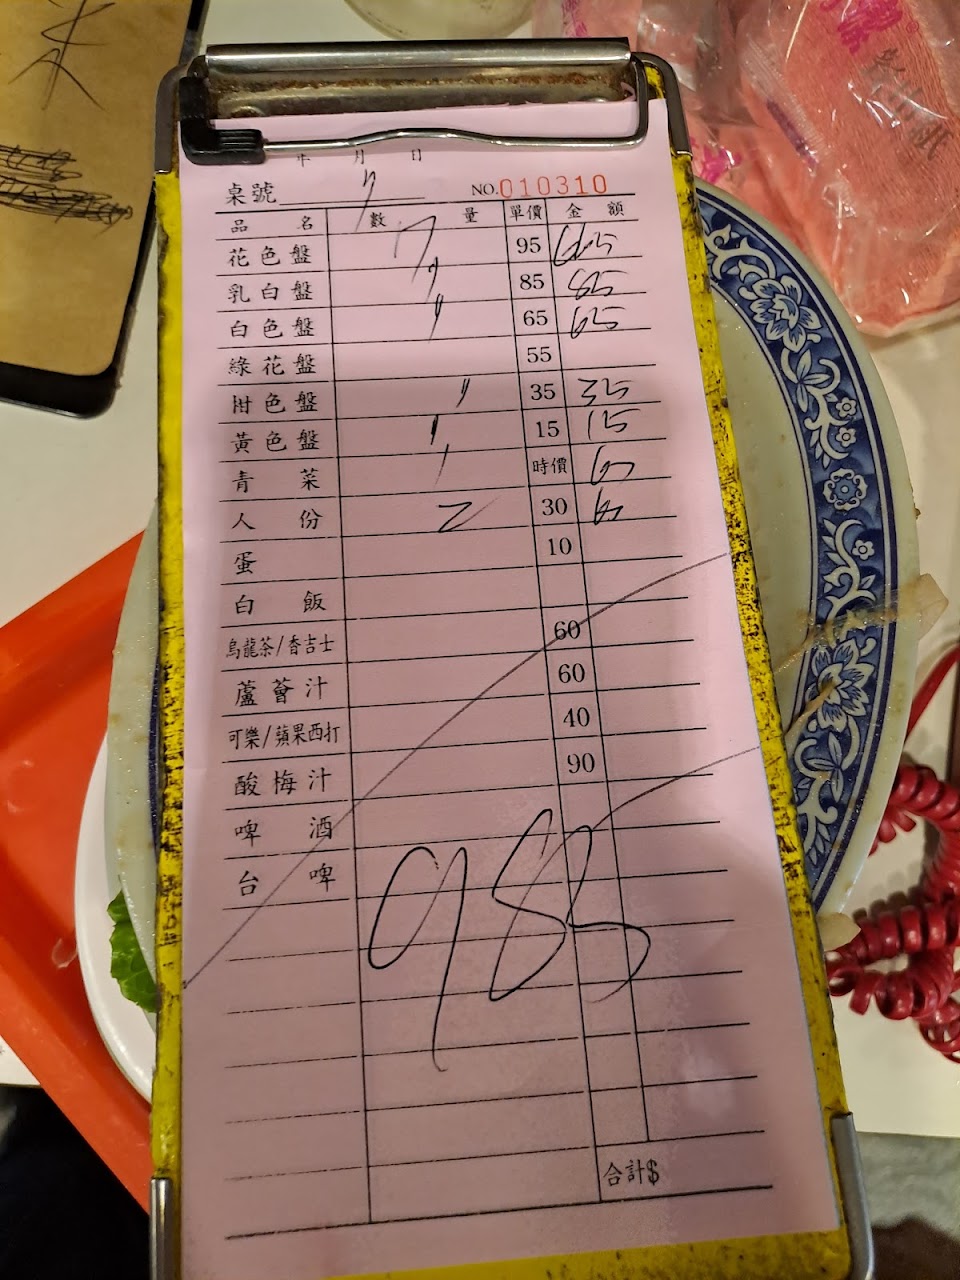 年 月 日
桌號 7 NO.010310
品名 數量 單價 金額
花色盤 7 95 665
乳白盤 1 85 85
白色盤 1 65 65
綠花盤 55
柑色盤 1 35 35
黃色盤 1 15 15
青菜 1 時價 60
人份 2 30 60
蛋 10
白飯
烏龍茶/香吉士 60
蘆薈汁 60
可樂/蘋果西打 40
酸梅汁 90
啤酒
台啤
985
合計$